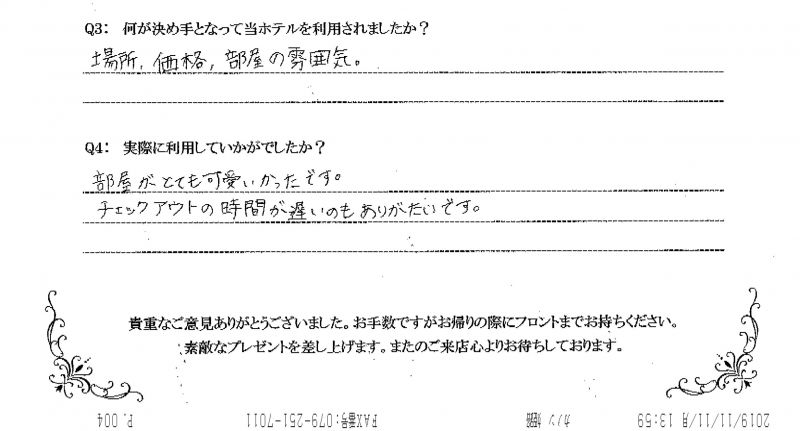 Q3: 何が決め手となって当ホテルを利用されましたか?
場所, 価格, 部屋の雰囲気。
Q4: 実際に利用していかがでしたか?
部屋がとても可愛いかったです。
チェックアウトの時間が遅いのもありがたいです。
貴重なご意見ありがとうございました。お手数ですがお帰りの際にフロントまでお持ちください。
素敵なプレゼントを差し上げます。またのご来店心よりお待ちしております。
2019/11/11/月 13:59 カノン 姫路 FAX番号:079-251-7011 P. 004